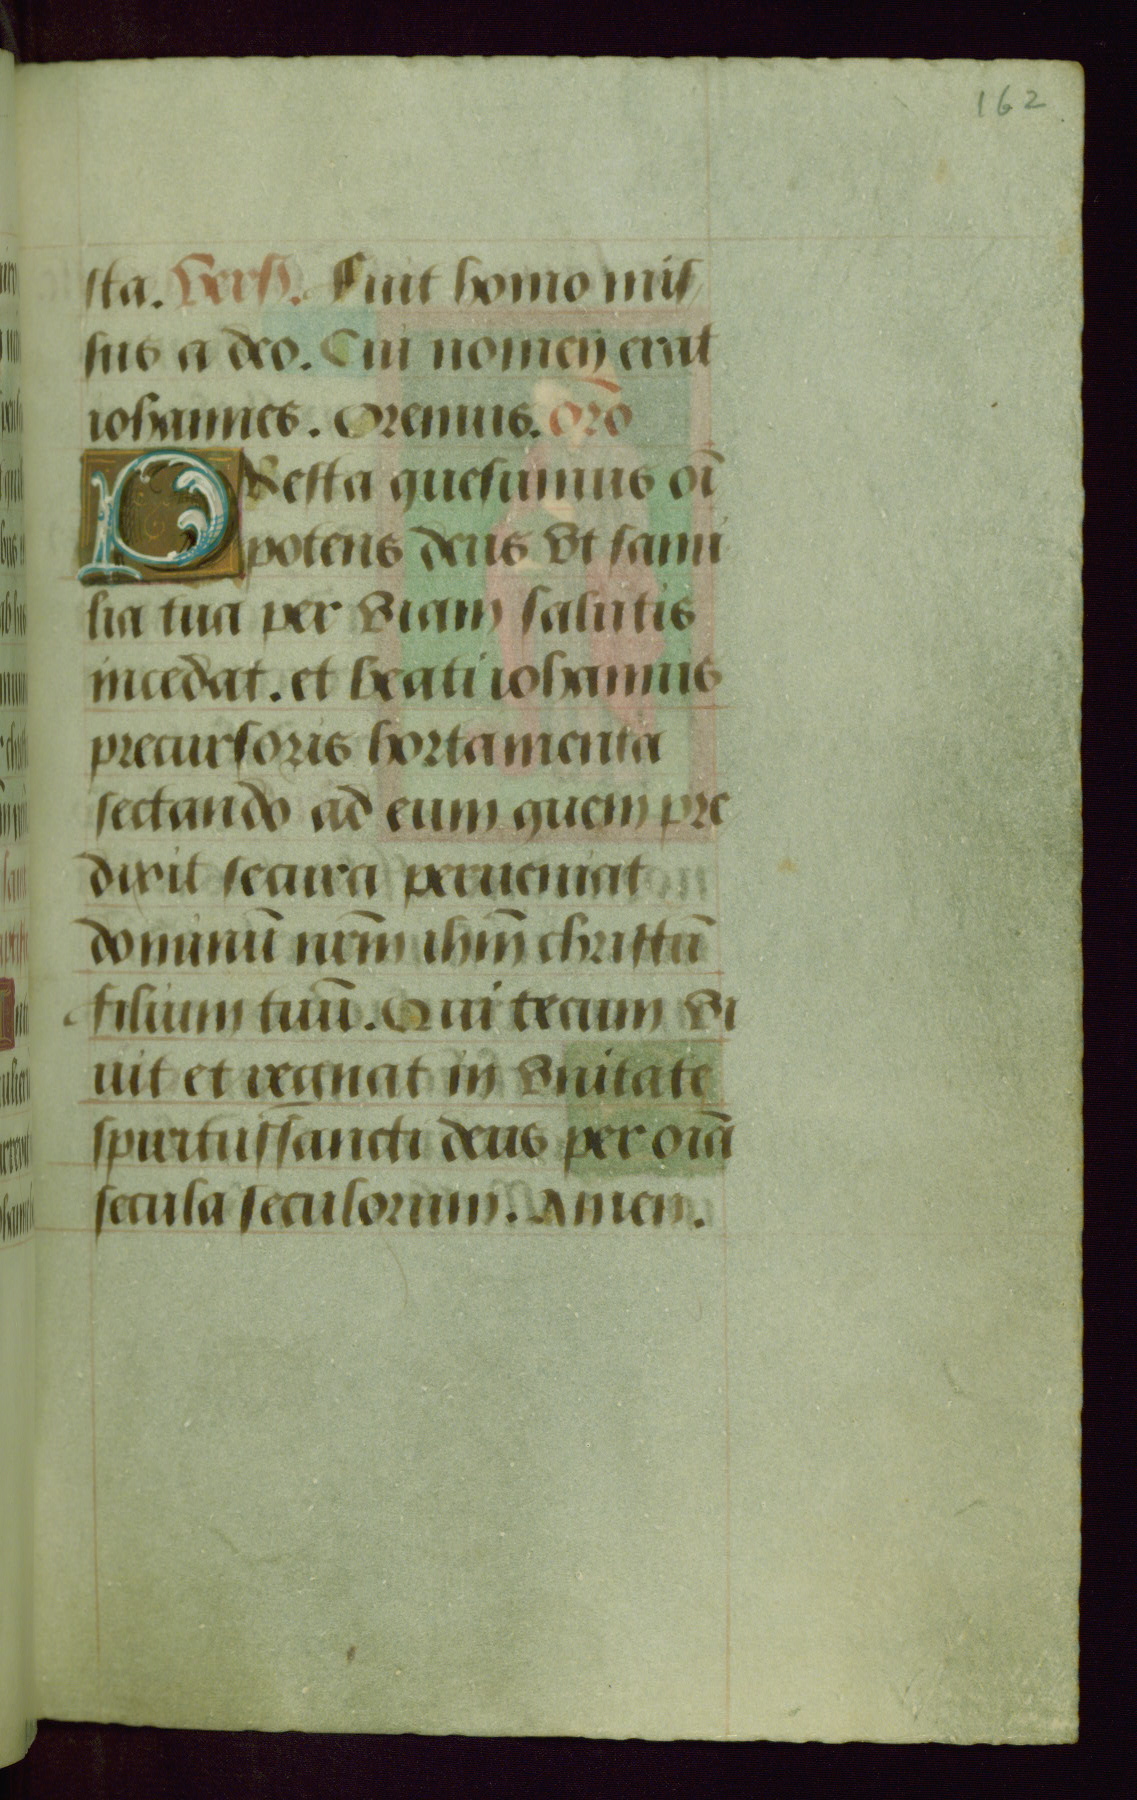 162
sta. Vers. Fuit homo mis
sus a deo. Cui nomen erat
iohannes. Oremus. Orō
PResta quesumus oī
potens deus vt fami
lia tua per viam salutis
incedat. et beati iohannis
precursoris hortamenta
sectando ad eum quem pre
dixit secura perueniat
dominū nrm̄ ihm̄ christū
filium tuū. Qui tecum vi
uit et regnat in vnitate
spiritussancti deus per oīa
secula seculorum. Amen.